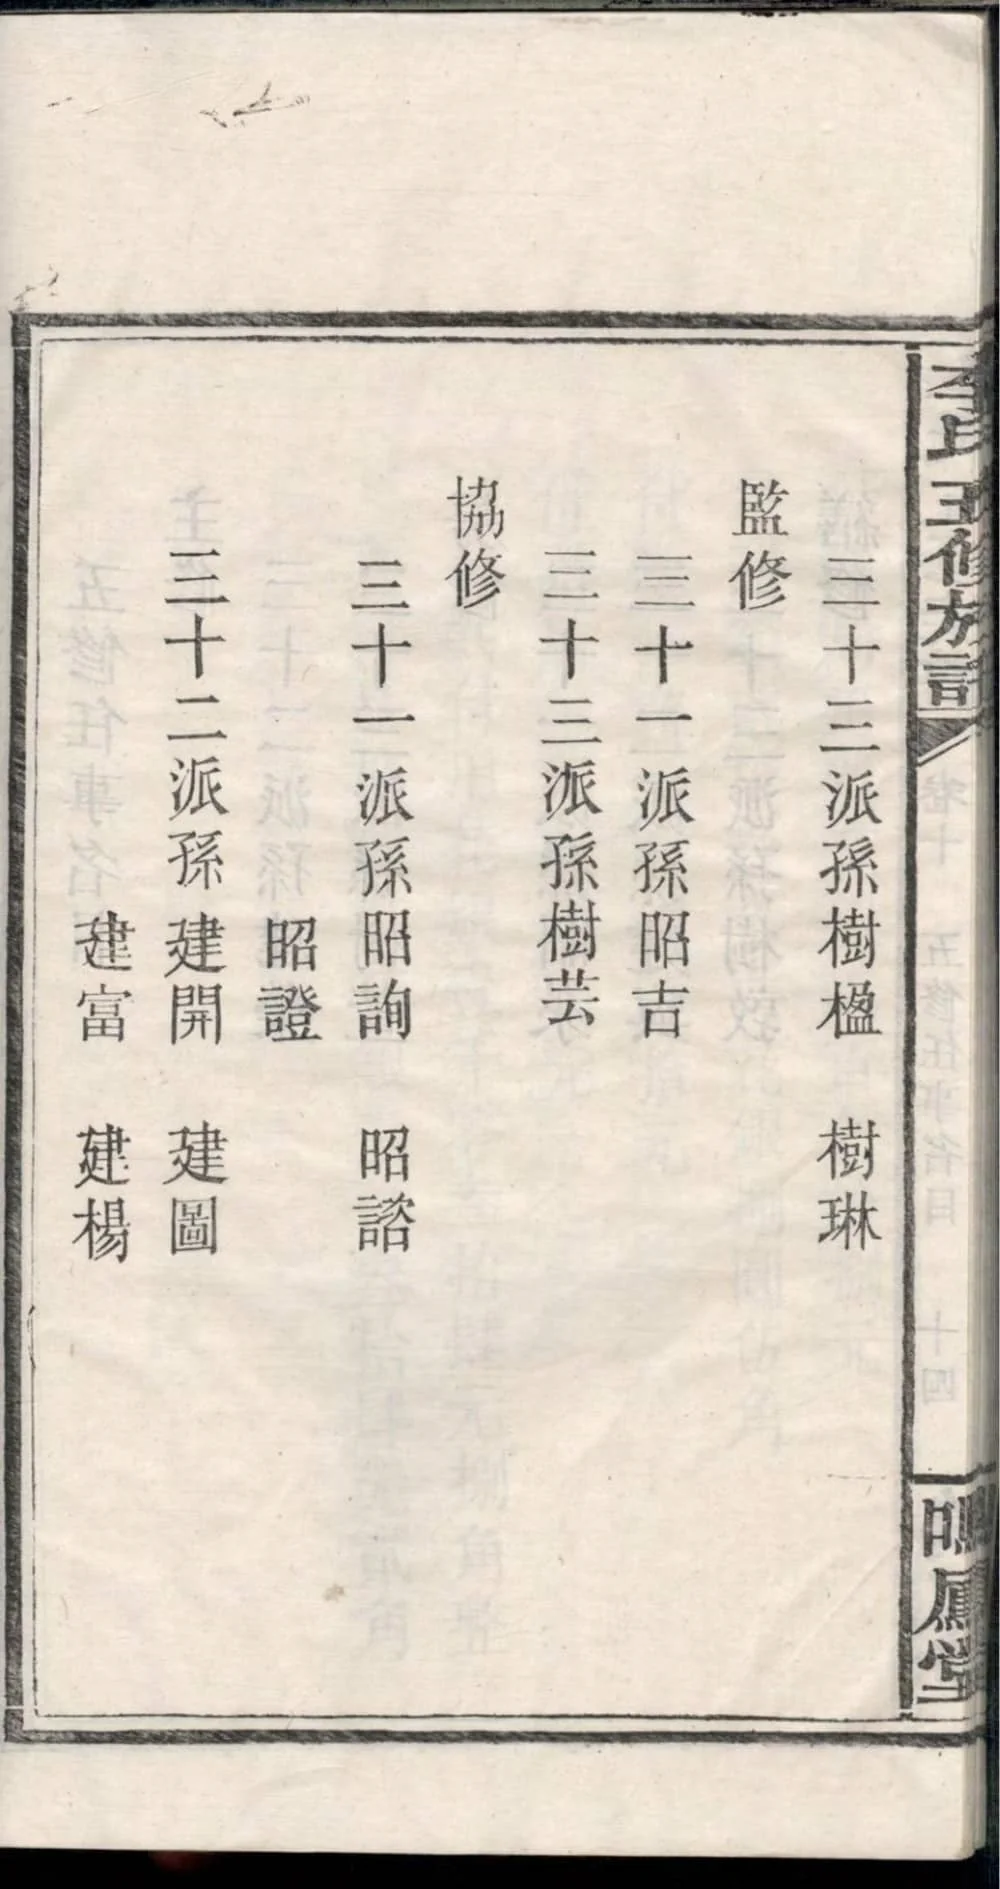 李氏五修族譜
鳴鳳堂
三十三派孫樹楹 樹琳
監修
三十一派孫昭吉
三十三派孫樹芸
協修
三十一派孫昭詢 昭諮
昭證
三十二派孫建開 建圖
建富 建楊